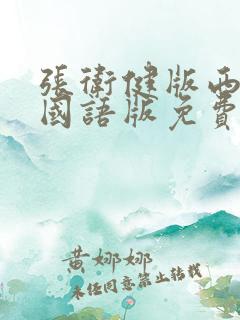 張衛健版西
國語版免費
黃娜娜
未經同意禁止轉載